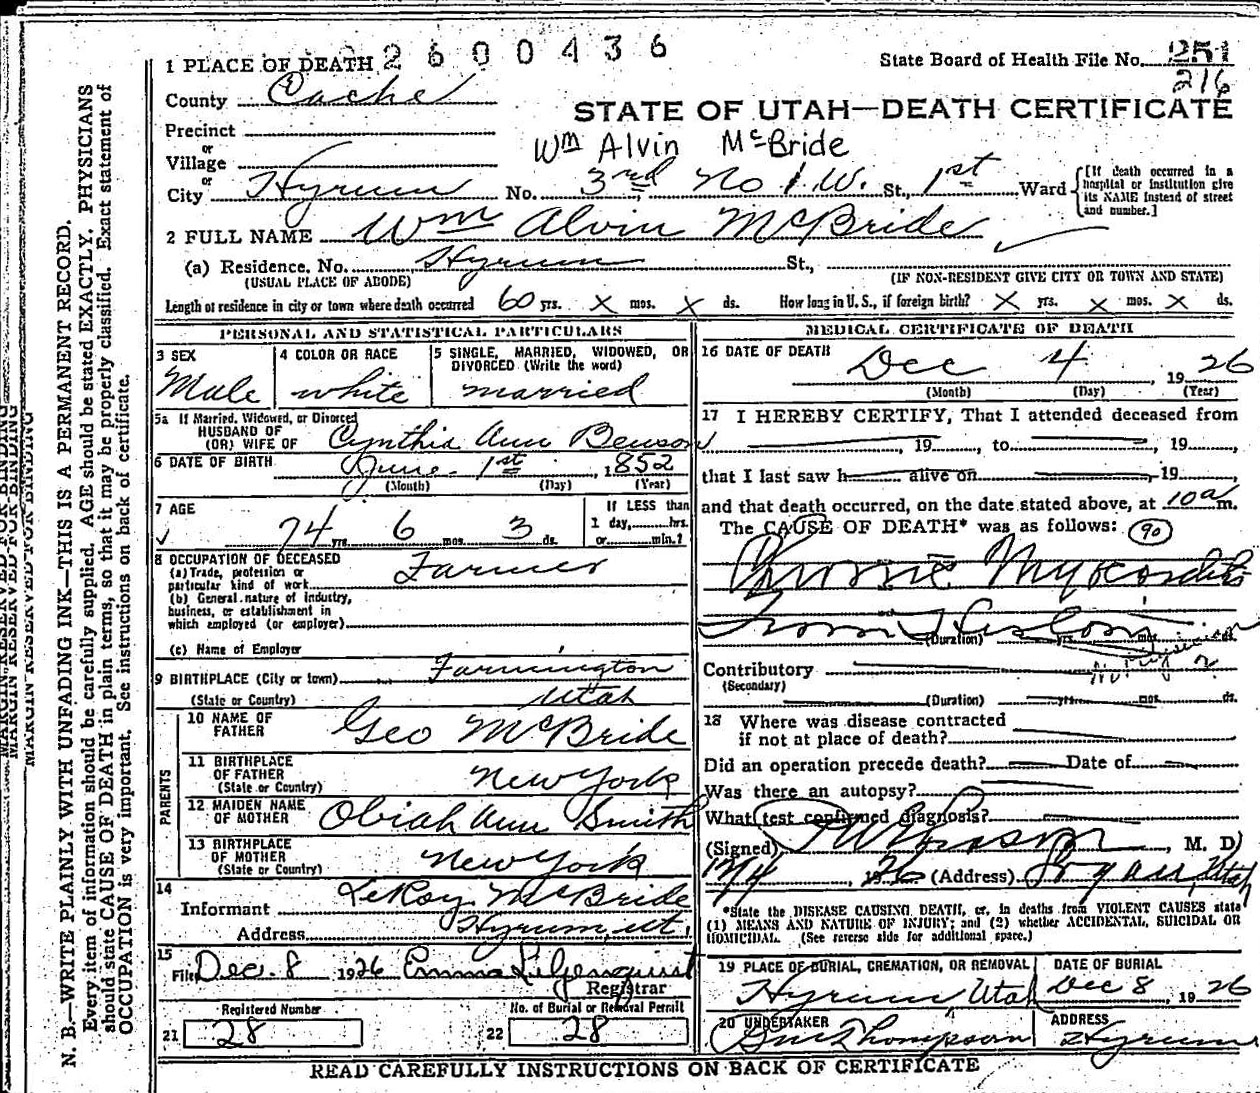 2600436
1 PLACE OF DEATH
State Board of Health File No. 251
216
County Cache
STATE OF UTAH—DEATH CERTIFICATE
Precinct
or
Village
Wm Alvin McBride
or
City Hyrum No. 3rd No 1 W. St, 1st Ward
[If death occurred in a hospital or institution give its NAME instead of street and number.]
2 FULL NAME Wm Alvin McBride
(a) Residence, No. Hyrum St.,
(USUAL PLACE OF ABODE) (IF NON-RESIDENT GIVE CITY OR TOWN AND STATE)
Length of residence in city or town where death occurred 60 yrs. X mos. X ds. How long in U. S., if foreign birth? X yrs. X mos. X ds.
PERSONAL AND STATISTICAL PARTICULARS
3 SEX
Male
4 COLOR OR RACE
white
5 SINGLE, MARRIED, WIDOWED, OR DIVORCED (Write the word)
married
5a If Married, Widowed, or Divorced
HUSBAND OF
(OR) WIFE OF Cynthia Ann Benson
6 DATE OF BIRTH June 1st, 1852
(Month) (Day) (Year)
7 AGE
74 yrs. 6 mos. 3 ds.
If LESS than
1 day, hrs.
or min.?
8 OCCUPATION OF DECEASED
(a) Trade, profession or
particular kind of work Farmer
(b) General nature of industry,
business, or establishment in
which employed (or employer)
(c) Name of Employer
9 BIRTHPLACE (City or town) Farmington
(State or Country) Utah
PARENTS
10 NAME OF FATHER Geo McBride
11 BIRTHPLACE OF FATHER
(State or Country) New York
12 MAIDEN NAME OF MOTHER Obiah Ann Smith
13 BIRTHPLACE OF MOTHER
(State or Country) New York
14
Informant LeRoy McBride
Address Hyrum, Ut.
15
Filed Dec. 8 1926 Emma Liljenquist
Registrar
Registered Number
21 28
No. of Burial or Removal Permit
22 28
MEDICAL CERTIFICATE OF DEATH
16 DATE OF DEATH
Dec 4, 1926
(Month) (Day) (Year)
17 I HEREBY CERTIFY, That I attended deceased from
, 19 , to , 19
that I last saw h alive on , 19
and that death occurred, on the date stated above, at 10 a m.
The CAUSE OF DEATH* was as follows: 90
Chronic Myocarditis
From History
(Duration) yrs. mos. ds.
Contributory
(Secondary)
(Duration) yrs. mos. ds.
18 Where was disease contracted
if not at place of death?
Did an operation precede death? Date of
Was there an autopsy?
What test confirmed diagnosis?
(Signed) , M. D)
12/4, 1926 (Address) Logan, Utah
*State the DISEASE CAUSING DEATH, or, in deaths from VIOLENT CAUSES state
(1) MEANS AND NATURE OF INJURY; and (2) whether ACCIDENTAL, SUICIDAL OR
HOMICIDAL. (See reverse side for additional space.)
19 PLACE OF BURIAL, CREMATION, OR REMOVAL
Hyrum Utah
DATE OF BURIAL
Dec 8, 1926
20 UNDERTAKER
Thompson
ADDRESS
Hyrum
READ CAREFULLY INSTRUCTIONS ON BACK OF CERTIFICATE
MARGIN RESERVED FOR BINDING
N. B.—WRITE PLAINLY WITH UNFADING INK—THIS IS A PERMANENT RECORD.
Every item of information should be carefully supplied. AGE should be stated EXACTLY. PHYSICIANS
should state CAUSE OF DEATH in plain terms, so that it may be properly classified. Exact statement of
OCCUPATION is very important. See instructions on back of certificate.